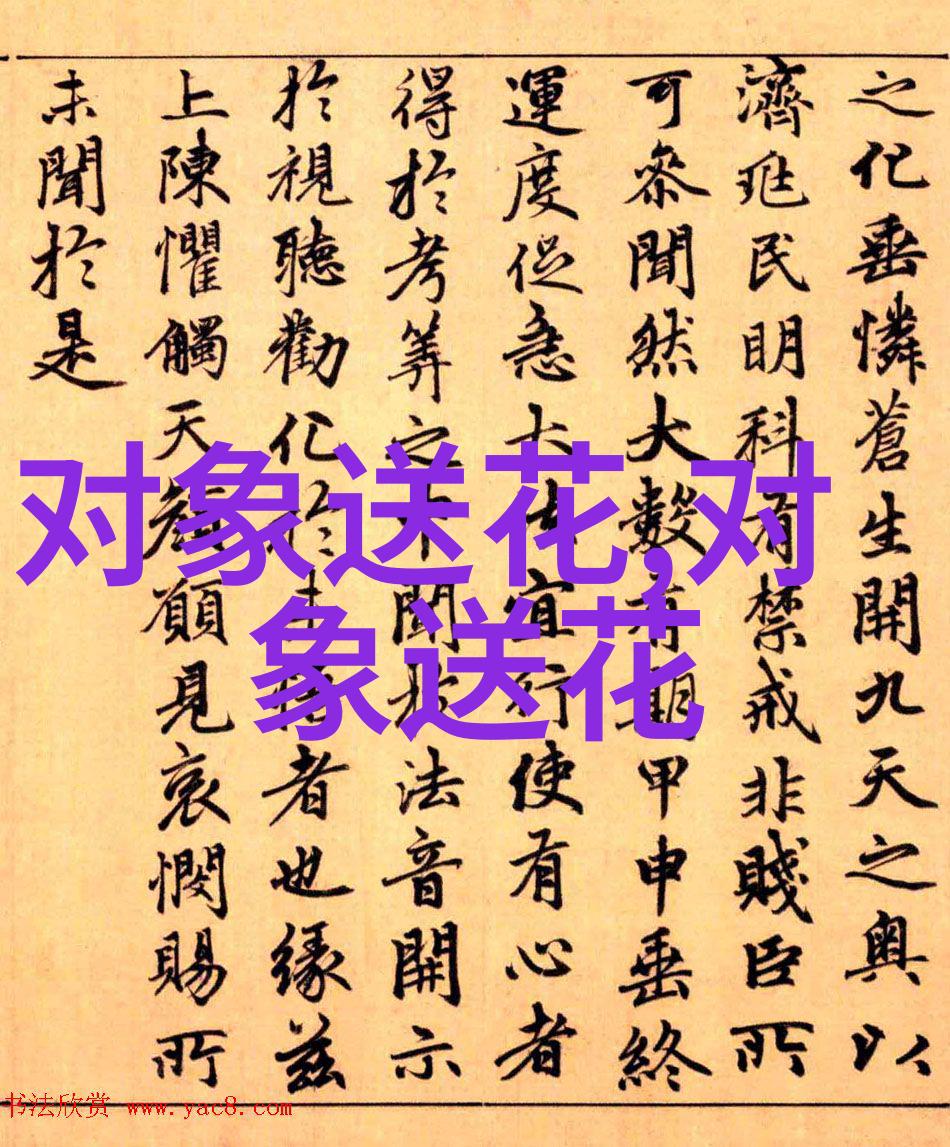 之化垂憐蒼生開九天之奧以
濟兆民明科有禁戒非賤臣所
可參聞然大數有期甲申垂終
運度促急大法宜行使有心者
得於考筭之中聞於法音開示
於視聽勸化於未悟者也緣茲
上陳懼觸天顏願見哀憫賜所
未聞於是
对象送花,对
象送花
书法欣赏 www.yac8.com